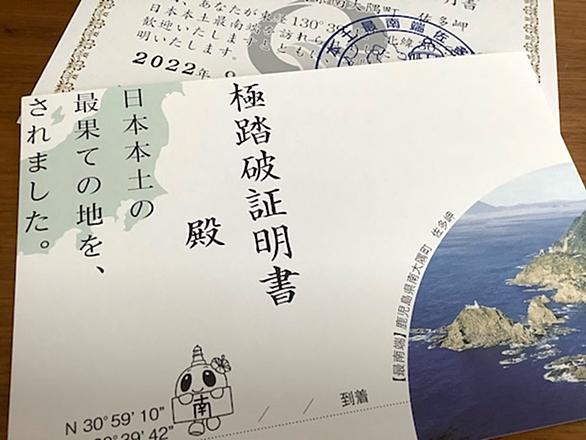 明書
南大隅町 佐多岬
、あなたが東経130°39
日本本土最南端を訪れら
歓迎いたしますとともに
明いたします
2022年 9
本土最南端佐多
極踏破証明書
殿
日本本土の
最果ての地を、
されました。
【最南端】鹿児島県南大隅町 佐多岬
南
/ / 到着
N 30°59' 10"
39' 42"